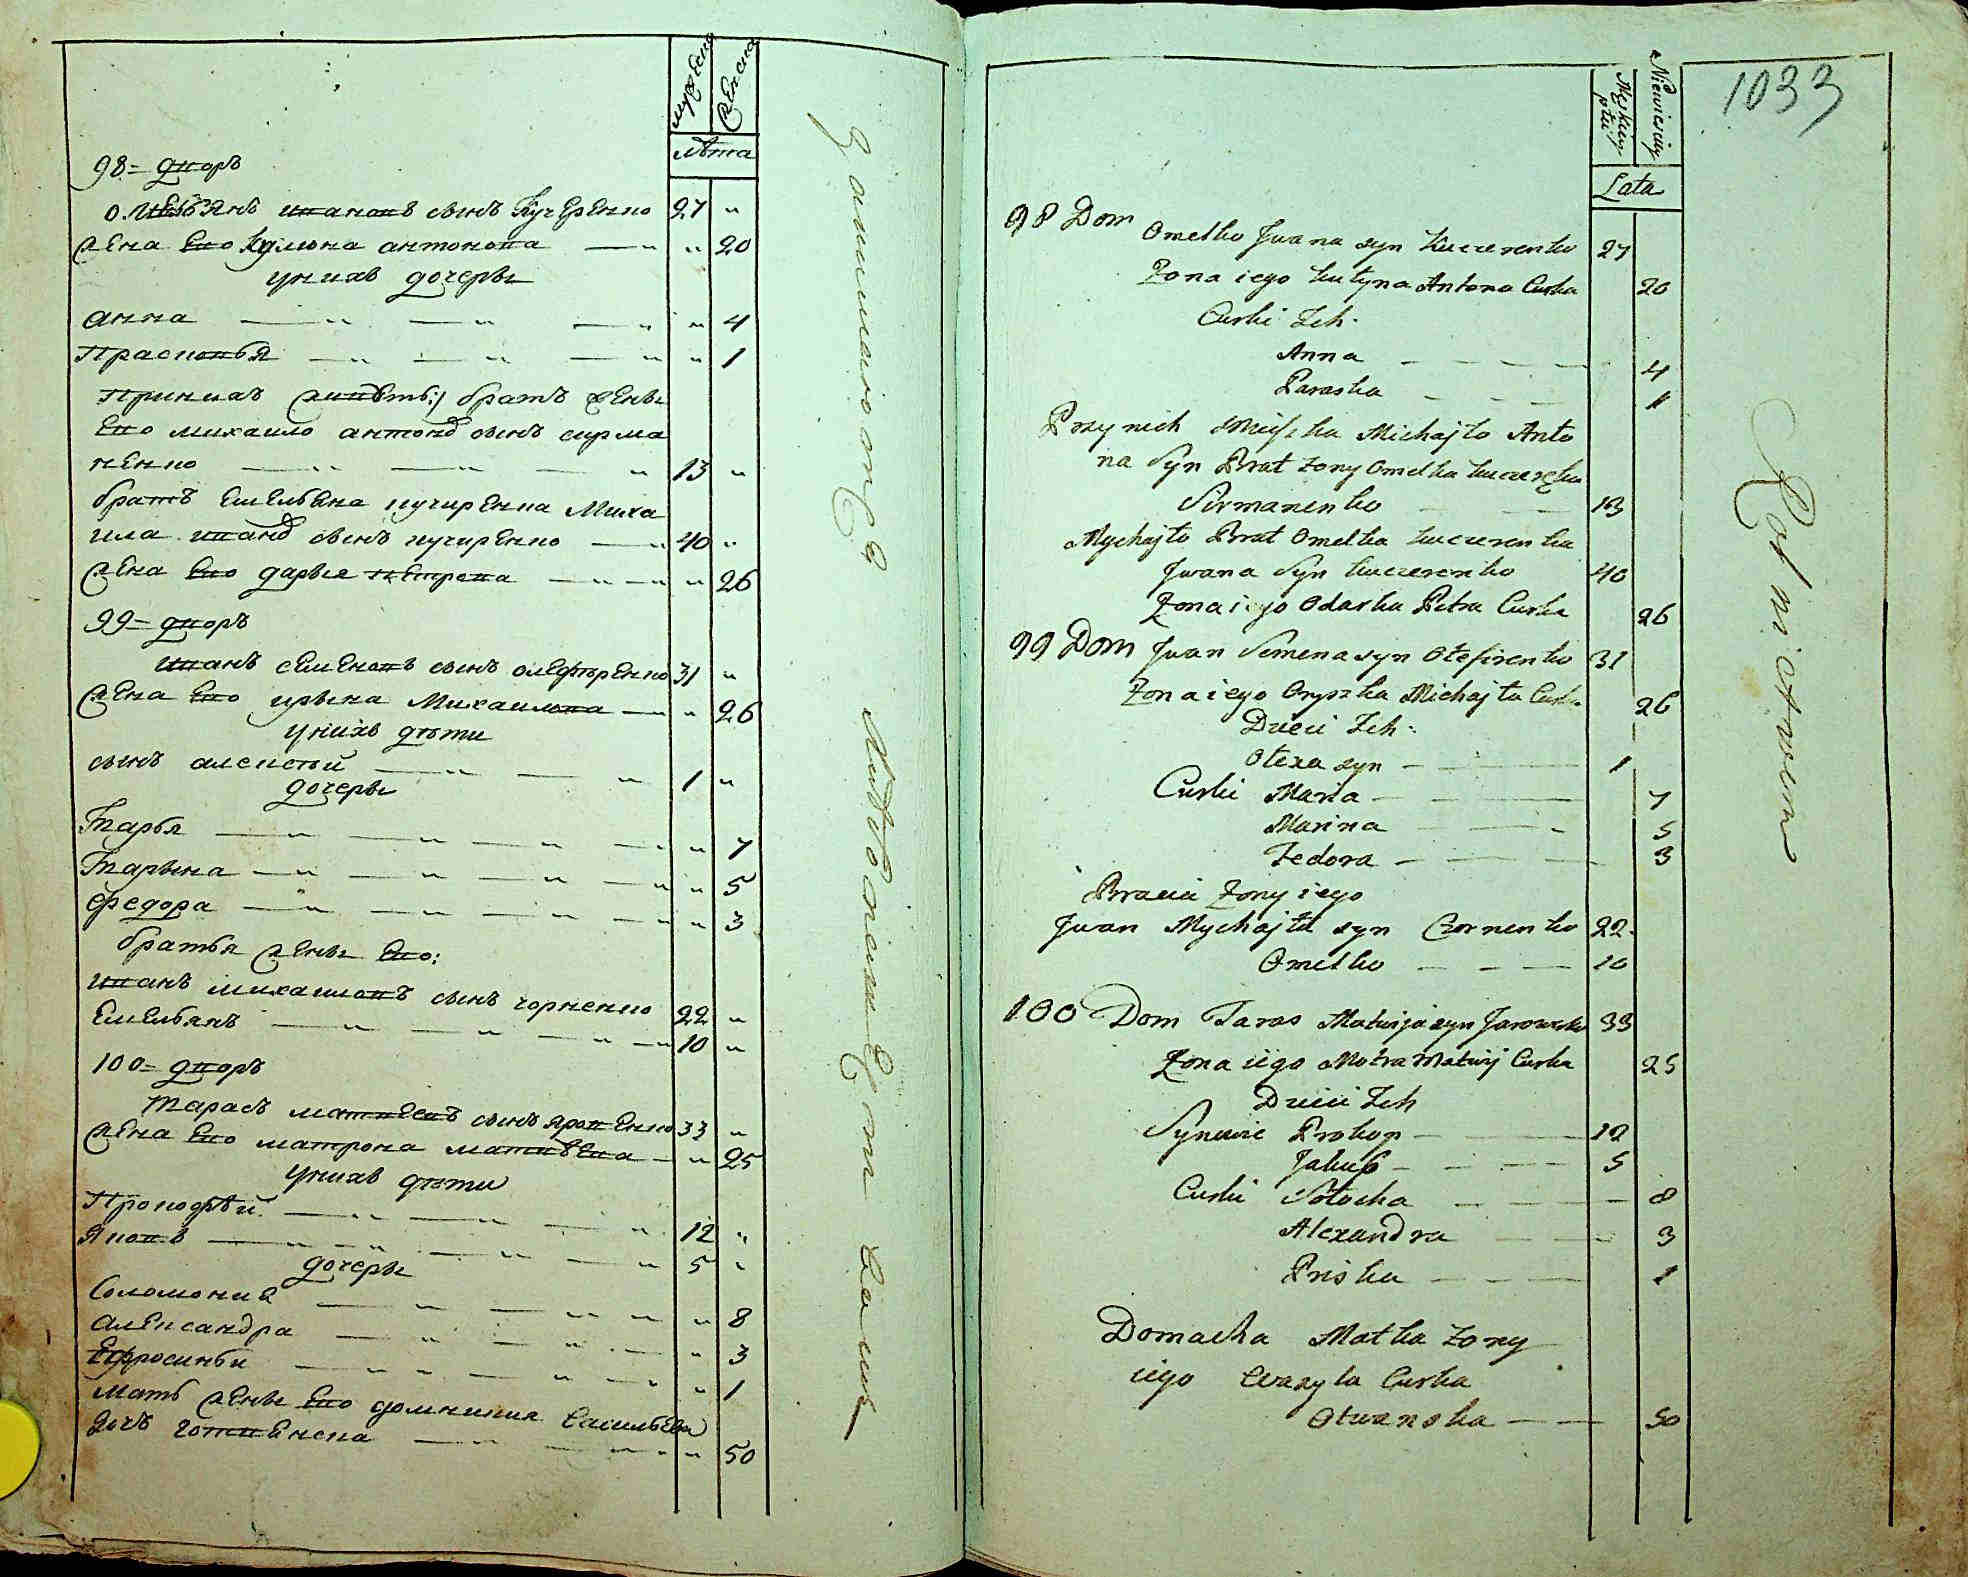 мужеска
женска
лѣта
98= дворъ
омелѣянъ ивановъ сынъ кучеренко 27 "
жена его кулина антонова — " " 20
у нихъ дочеры
анна — " — " — " " 4
Прасковья — " — " — " " 1
При нихъ живѣтъ:/ братъ жены
его михаило антоно́в сынъ сирма
ненко — " — " — " 13 "
братъ емельяна кучиренка Миха
ила ивано́в сынъ кучиренко — " 40 "
жена его дарья петрова — " — " " 26
99= дворъ
иванъ семеновъ сынъ олефиренко 31 "
жена его ирына Михаилова — " " 26
у нихъ дѣти
сынъ алексѣй — " — " 1 "
дочеры
Марья — " — " — " " 7
Марына — " — " — " " 5
федора — " — " — " " 3
братья жены его:
иванъ михаиловъ сынъ чорненко 22 "
Емельянъ — " — " — " 10 "
100= дворъ
Тарасъ матвеевъ сынъ яровенко 33 "
жена его матрона матвѣева — " " 25
у нихъ дѣти
Прокофѣй — " — " — " 12 "
Яковъ — " — " — " 5 "
дочеры
Соломония — " — " — " " 8
александра — " — " — " " 3
Ефросинья — " — " — " " 1
мать жены его домникия Васильева
дочъ готвенска — " — " " 50
Занимаются хлѣбопашеством
1033
Męskiey płci
Niewiesciey
Lata
98 Dom Omelko Jwana syn Kuczerenko 27
Żona iego Kulyna Antona Curka 20
Curki Ich:
Anna — — — — 4
Paraska — — — 1
Przy nich Mięszka Michajło Anto
na Syn Brat Żony Omelka Kuczeręka
Sirmanenko — — 13
Mychajło Brat Omelka Kuczerenka
Jwana Syn Kuczerenko 40
Żona iego Odarka Petra Curka 26
99 Dom Jwan Semena syn Olefirenko 31
Żona iego Oryszka Michajła Curka 26
Dzieci Ich:
Olexa syn — — — 1
Curki Maria — — — 7
Marina — — — 5
Fedora — — — 3
Bracia Żony iego
Jwan Mychajła syn Czornenko 22.
Omelko — — — 10
100 Dom Taras Matwija syn Jarowenko 33
Żona iego Motra Matwij Curka 25
Dzieci Ich
Synowie Prokop — — 12
Jakub — — — 5
Curki Sołocha — — — 8
Alexandra — — 3
Priska — — — 1
Domacha Matka Żony
iego Wasyla Curka
Otwanska — — 50
Rolnictwem